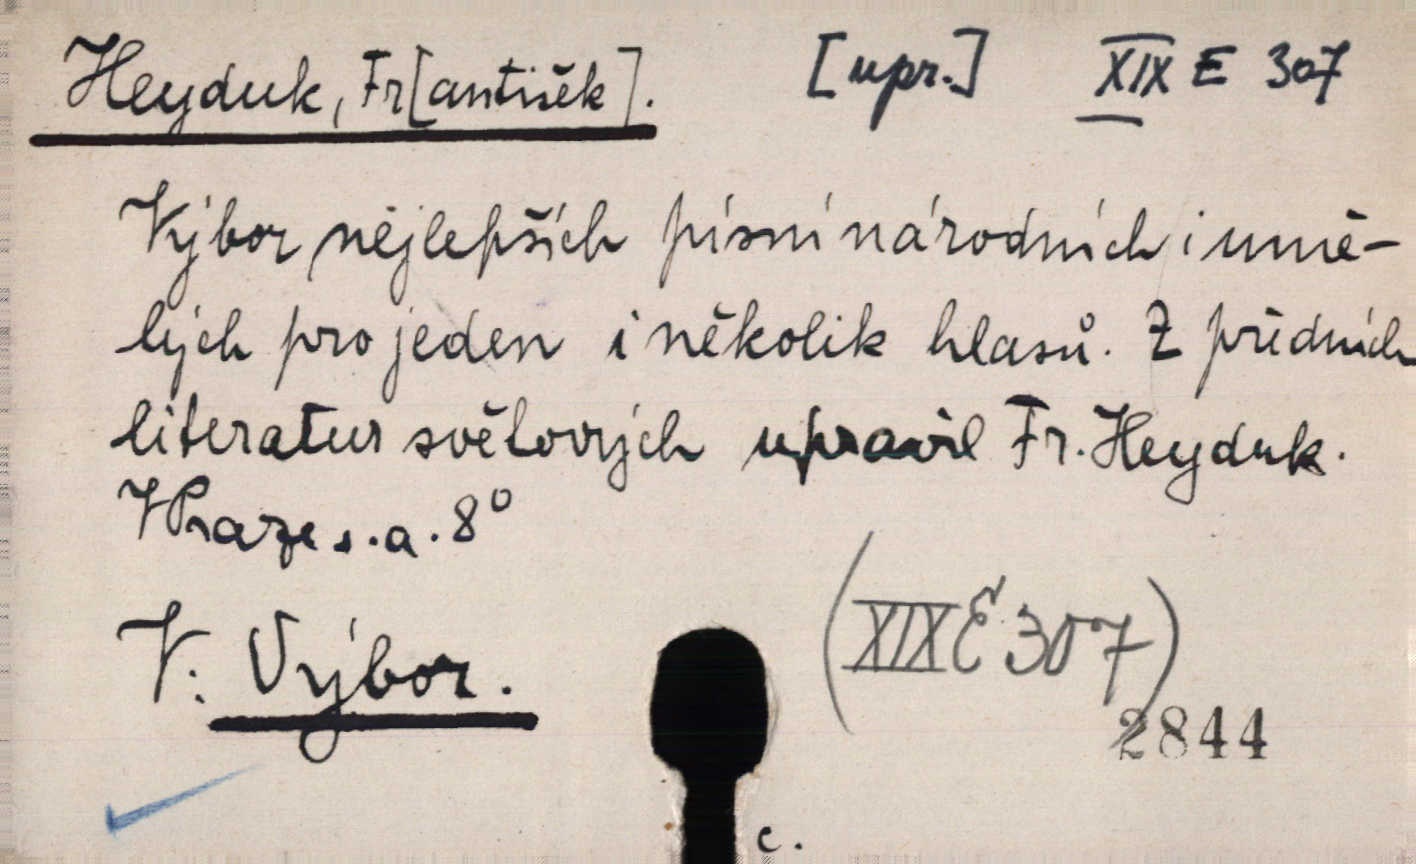 Heyduk, Fr[antišek]. [upr.] XIX E 307
Výbor nejlepších písní národních i umě-
lých pro jeden i několik hlasů. Z předních
literatur světových upravil Fr. Heyduk.
V Praze s.a. 8°
V: Výbor.
(XIX E 307)
2844
c.